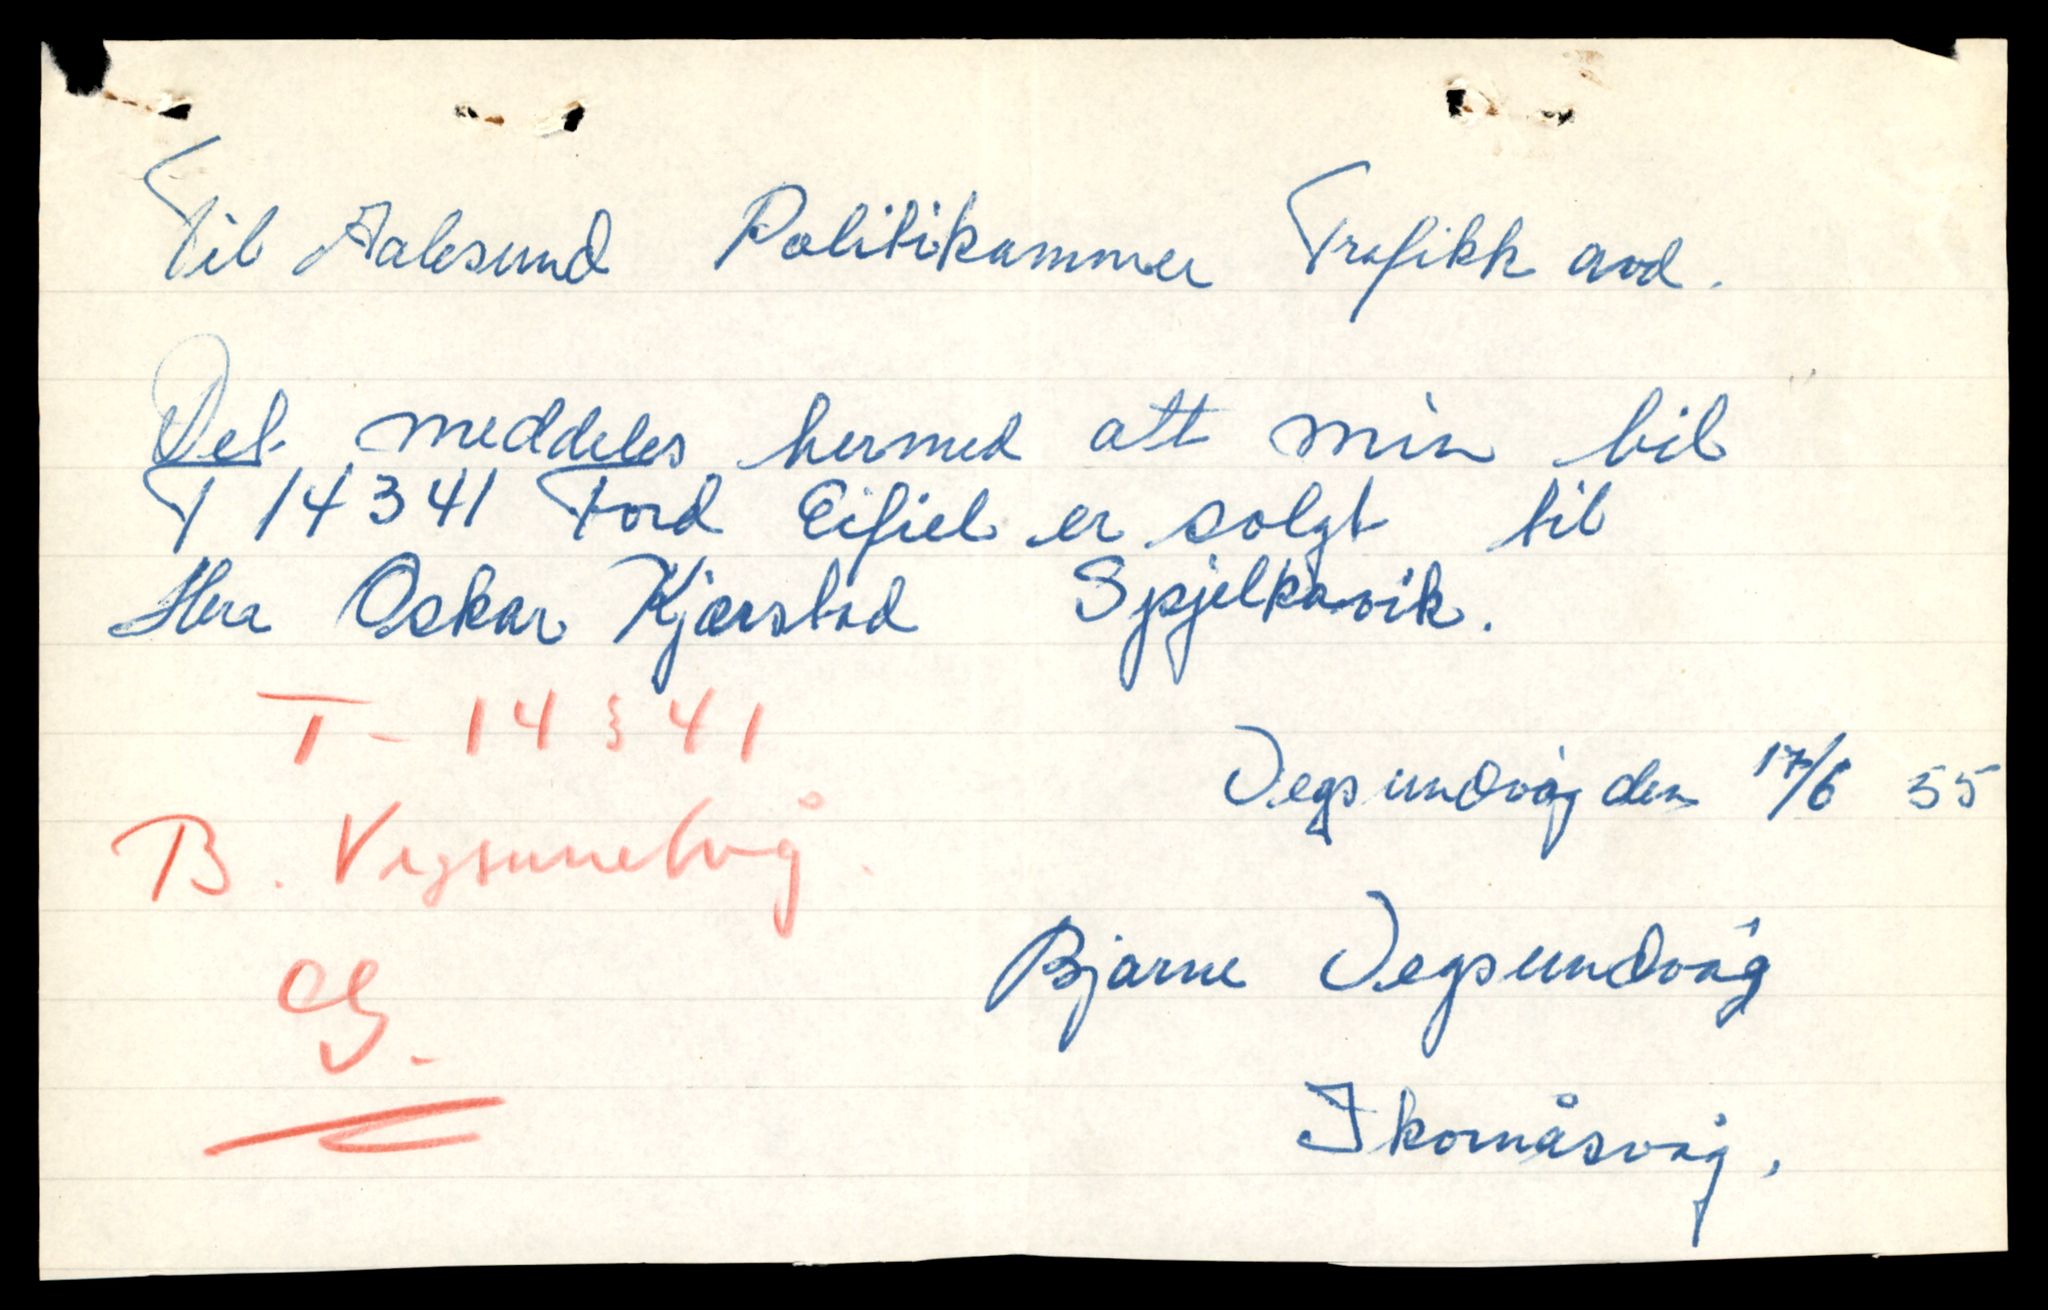 Til Aalesund Politikammer Trafikk avd.
Det meddeles hermed att min bil
T 14341 Ford Eifiel er solgt til
Herr Oskar Kjærstad Spjelkavik.
T-14341
Vegsundvåg den 17/6 55
B. Vegsundvåg.
Bjarne Vegsundvåg
Ikornåsvåg.